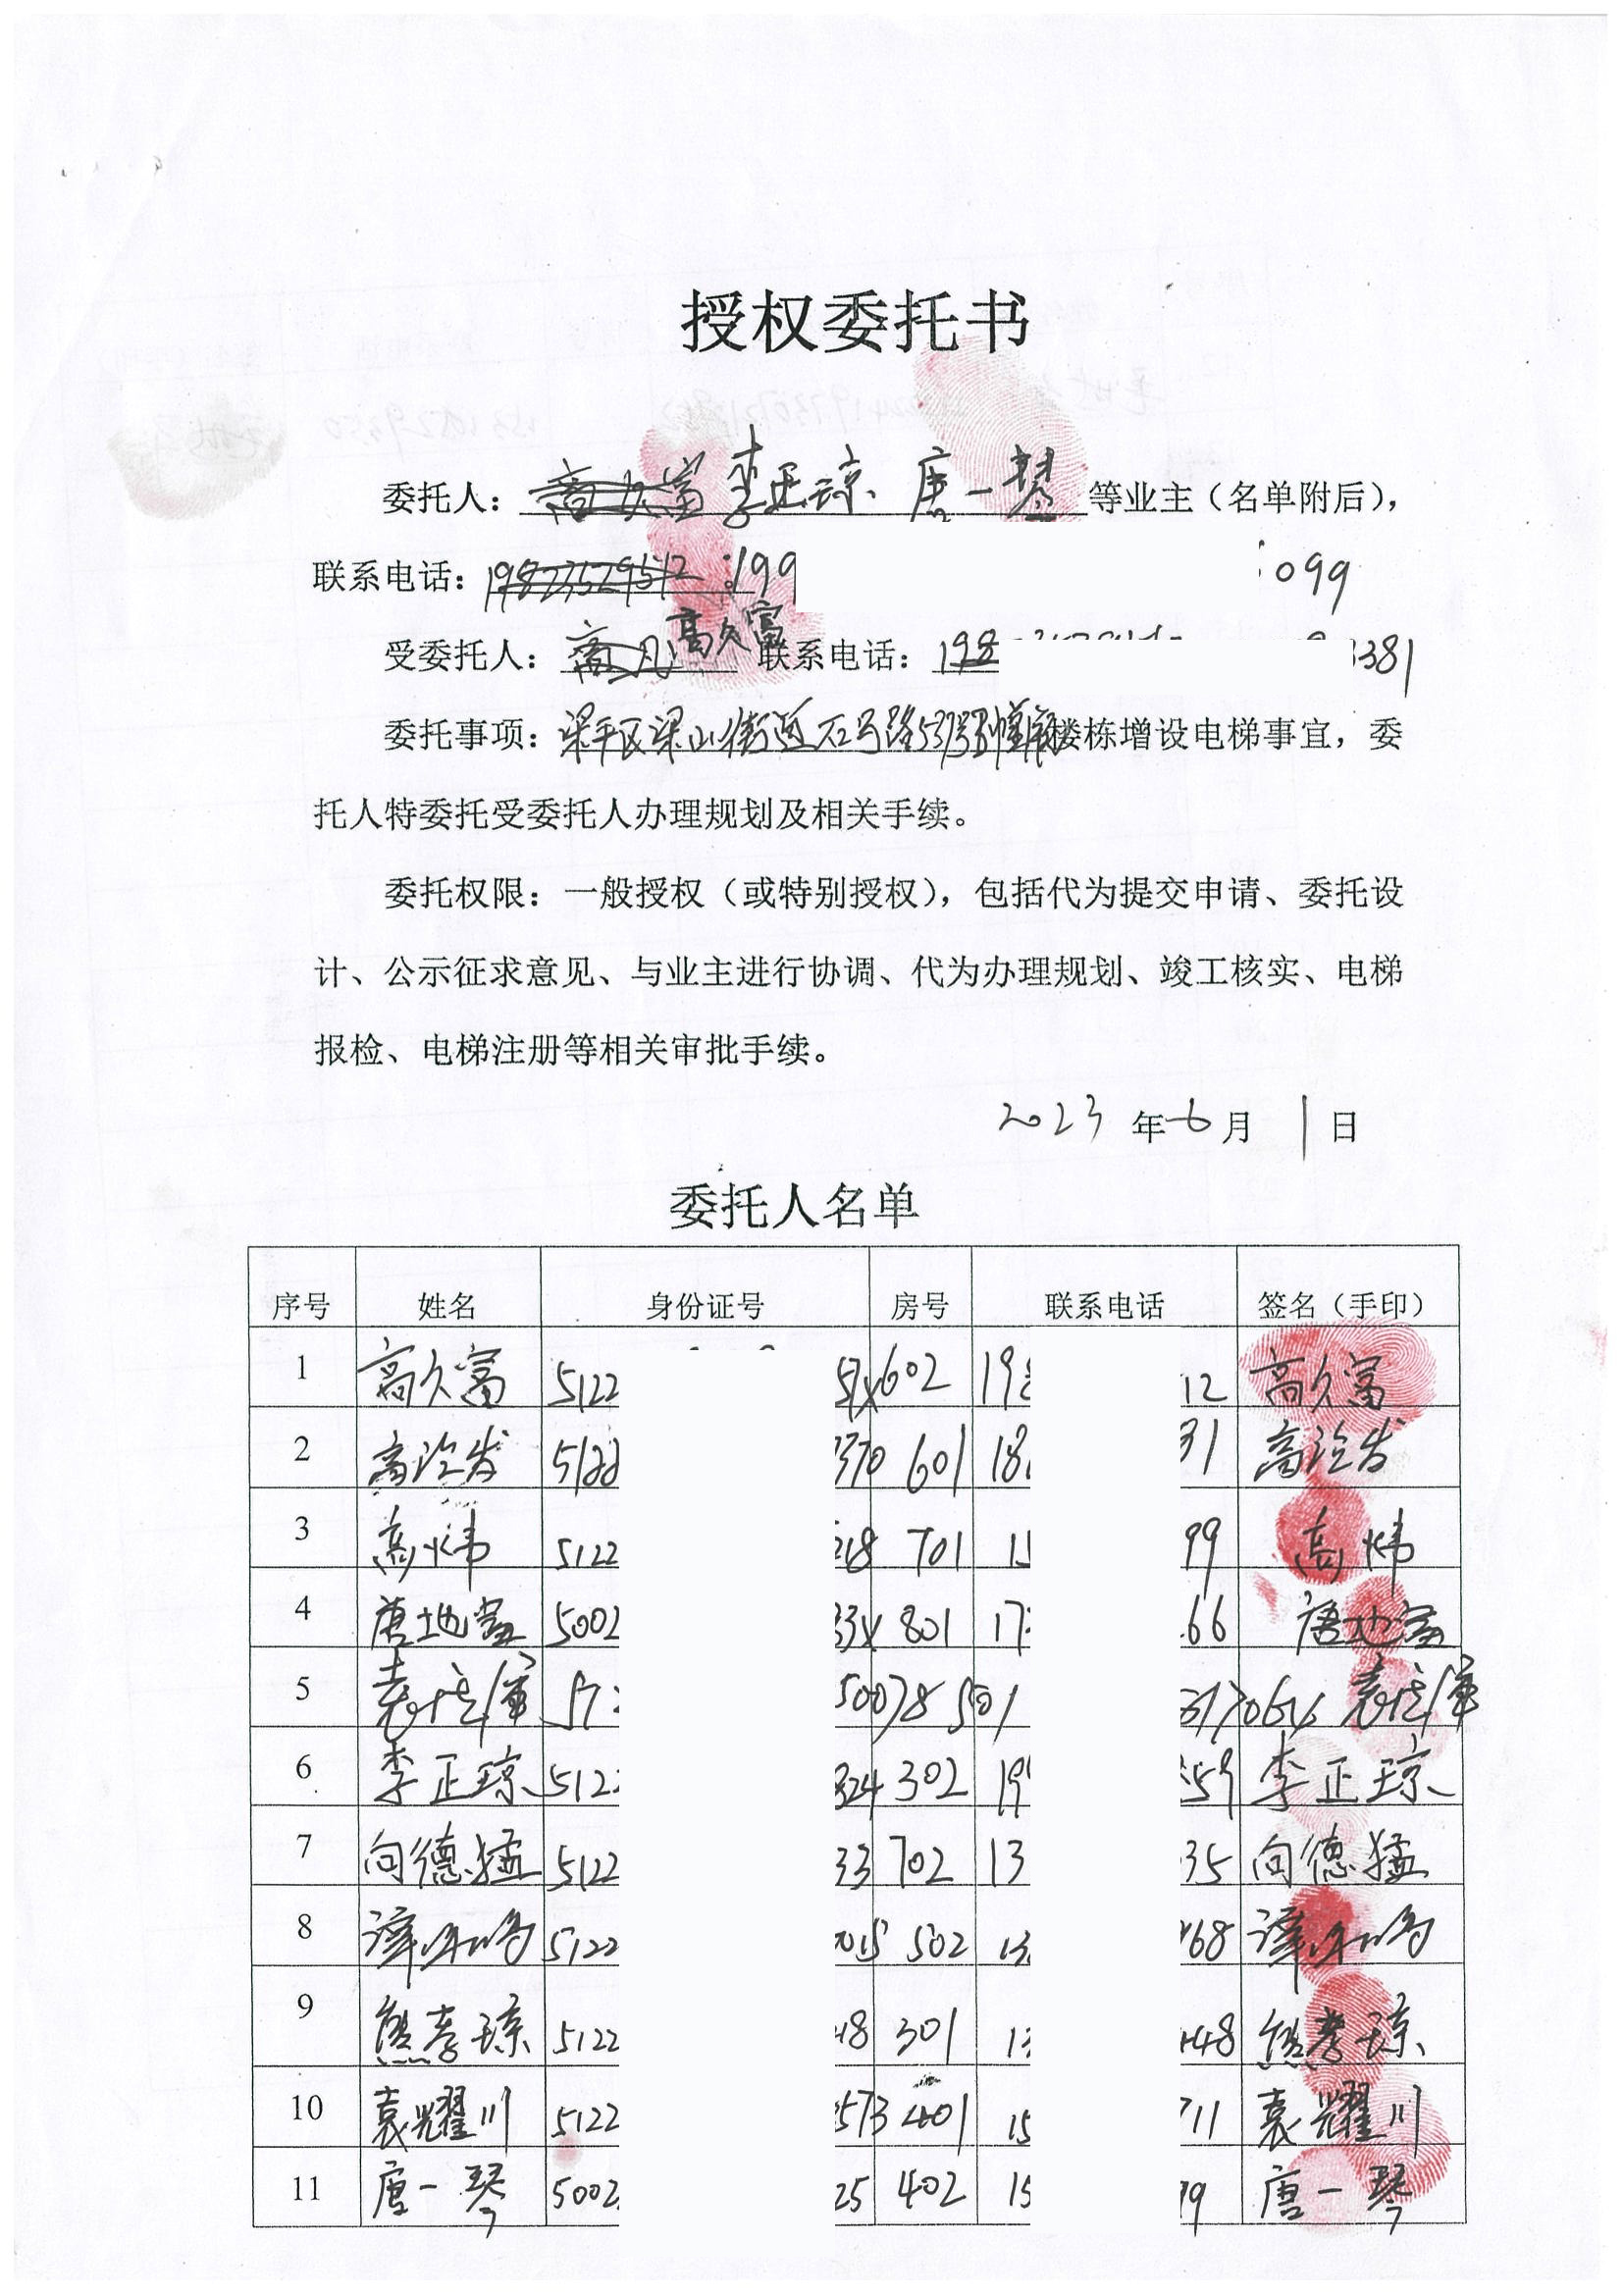 授权委托书
委托人：高久富 李正琼、唐一琴 等业主（名单附后），
联系电话：19823529512 199 099
受委托人：高凡 高久富 联系电话：198 3381
委托事项：梁平区梁山街道石马路537号 楼栋增设电梯事宜，委
托人特委托受委托人办理规划及相关手续。
委托权限：一般授权（或特别授权），包括代为提交申请、委托设
计、公示征求意见、与业主进行协调、代为办理规划、竣工核实、电梯
报检、电梯注册等相关审批手续。
2023 年 6 月 1 日
委托人名单
序号 姓名 身份证号 房号 联系电话 签名（手印）
1 高久富 5122 57X 602 198 12 高久富
2 高 发 5122 370 601 18 31 高 发
3 高炜 5122 218 701 1 99 高炜
4 唐地富 5002 33X 801 17 66 唐地富
5 袁 军 512 50078 501 3170 袁 军
6 李正琼 5122 324 302 199 59 李正琼
7 向德猛 5122 33 702 13 35 向德猛
8 谭 5122 015 502 13 68 谭
9 熊孝琼 5122 18 301 13 48 熊孝琼
10 袁耀川 5122 573 401 15 711 袁耀川
11 唐一琴 5002 25 402 15 99 唐一琴